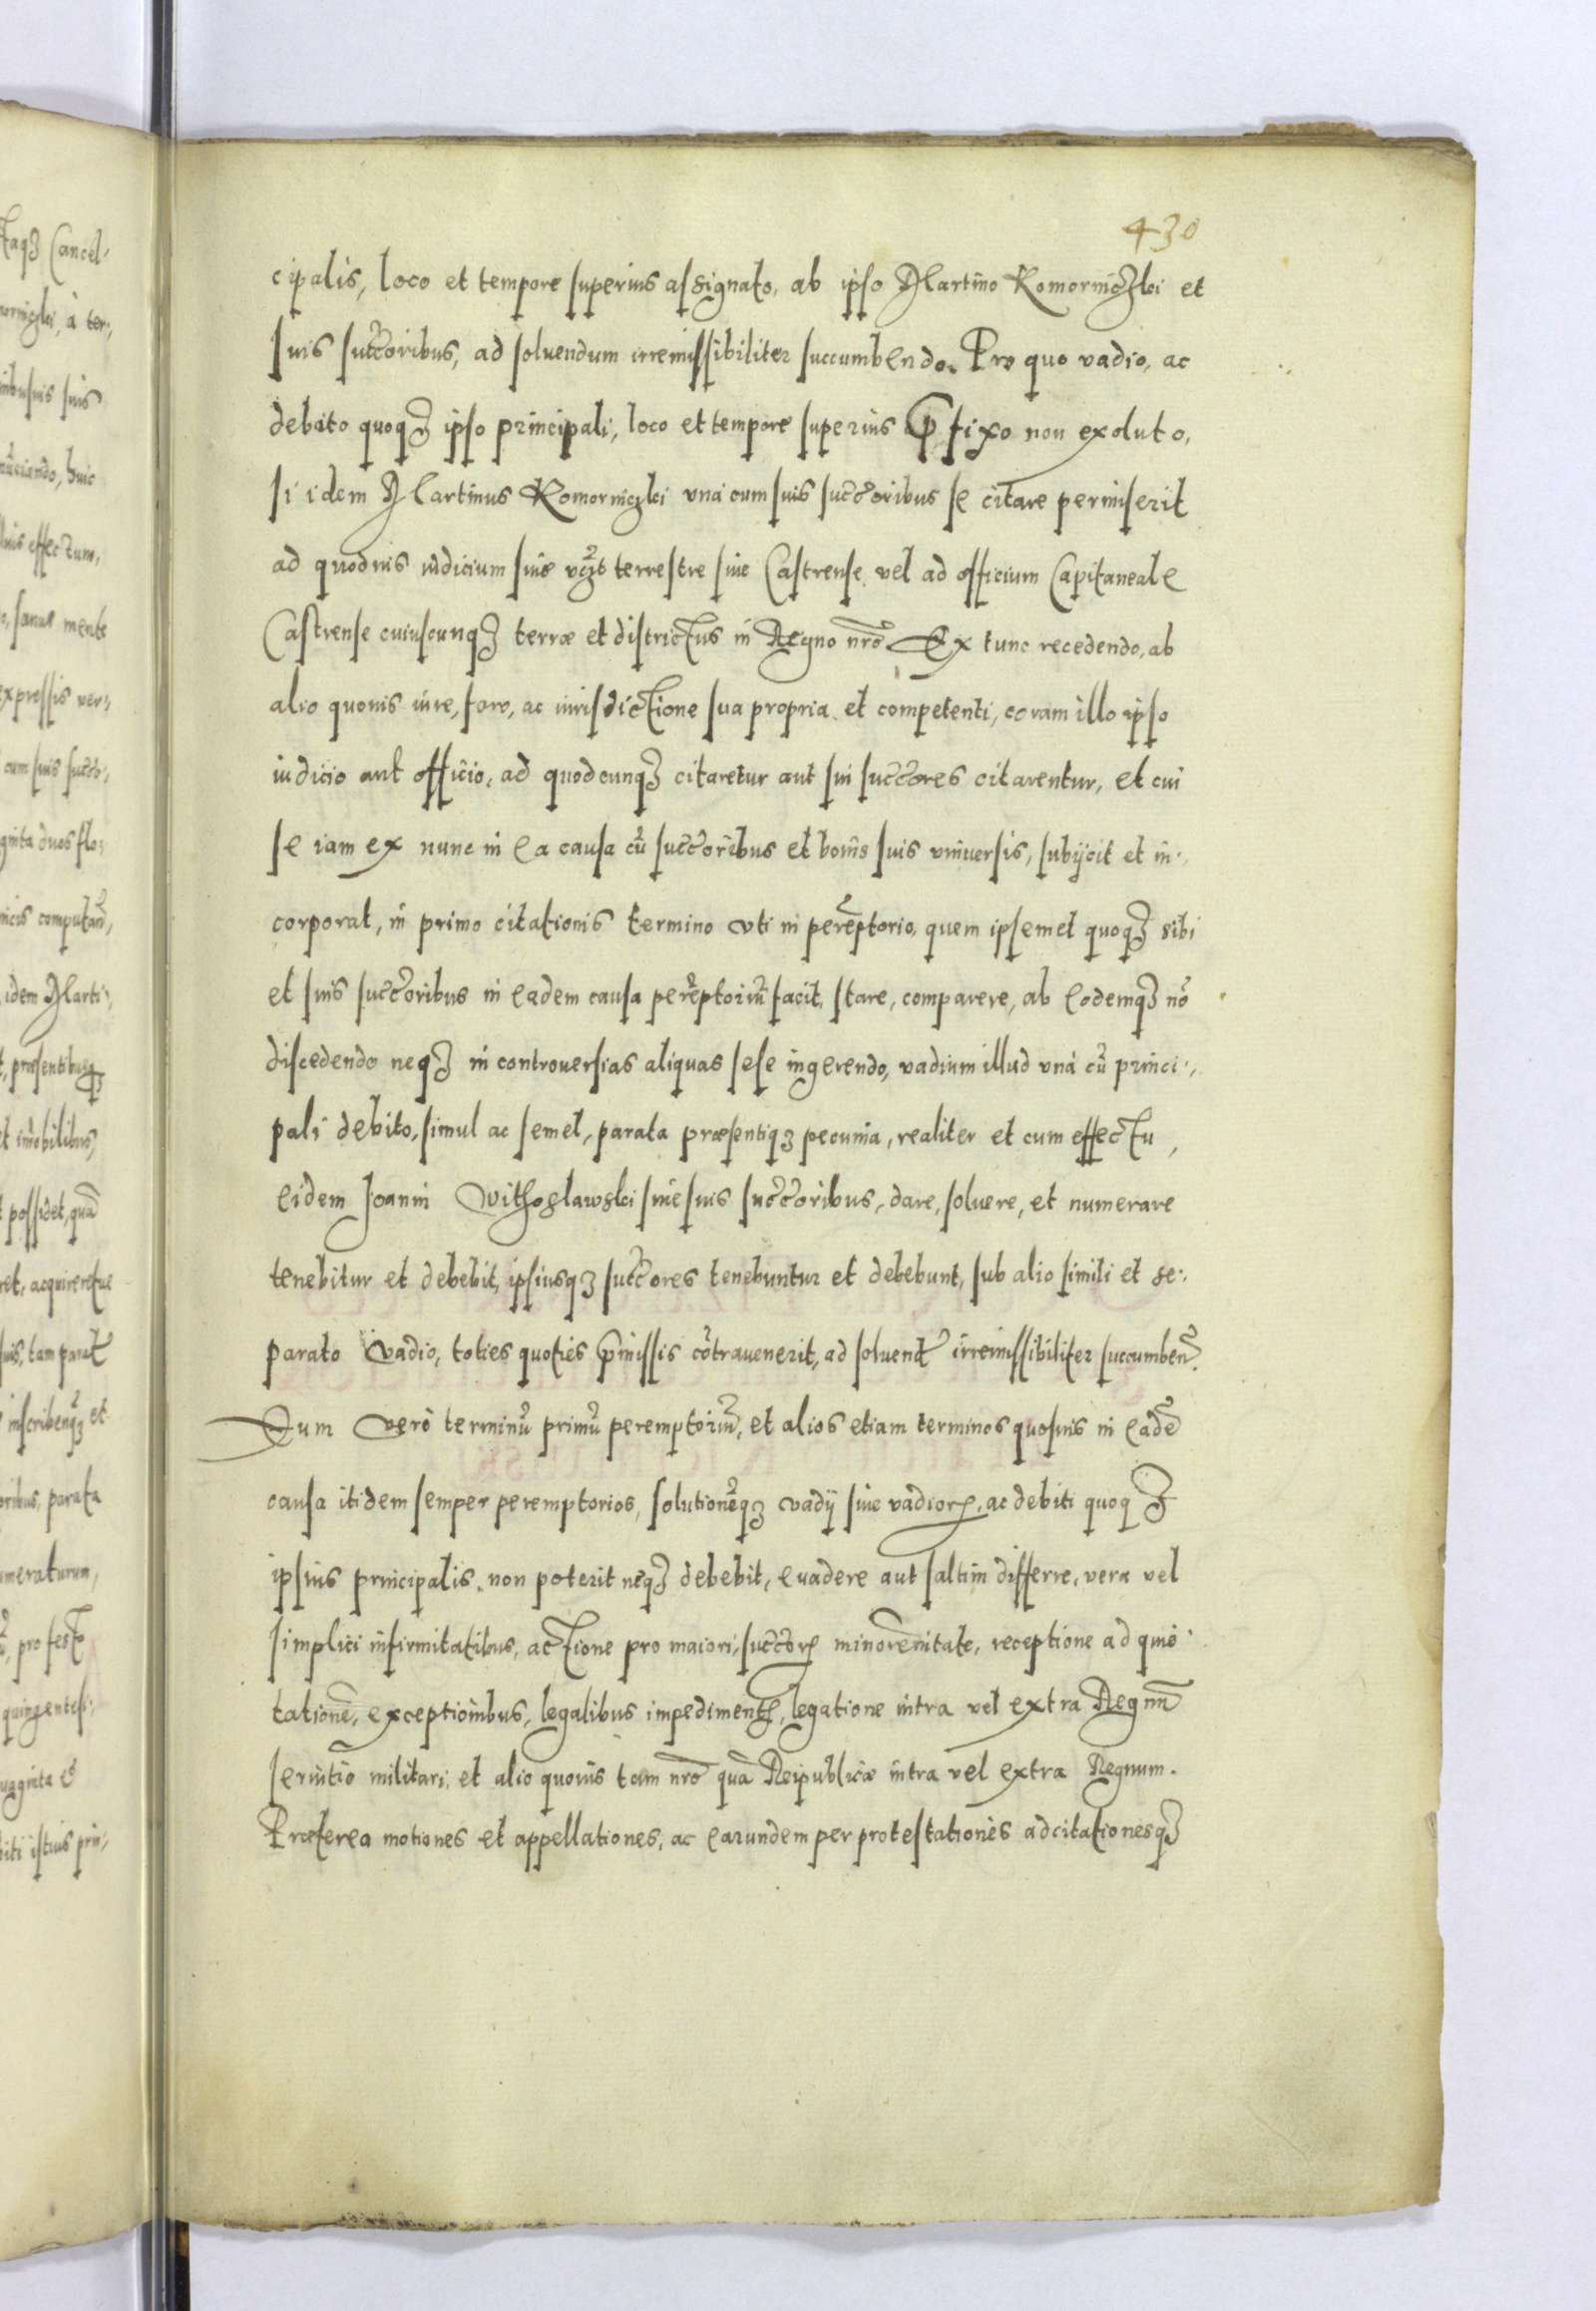 430
cipalis, loco et tempore superius assignato, ab ipso Martino Komorniczki et
suis succ̃oribus, ad soluendum irremissibiliter succumbendo. Pro quo vadio, ac
debito quoqȝ ipso principali, loco et tempore superius p̃fixo non exoluto,
si idem Martinus Komorniczki vnà cum suis succ̃oribus se citare permiserit
ad quoduis iudicium siue terrestre siue Castrense, vel ad officium Capitaneale
Castrense cuiuscunqȝ terræ et districtus in Regno nr̃o Ex tunc recedendo, ab
alio quouis iure, foro, ac iurisdictione sua propria et competenti, coram illo ipso
iudicio aut officio, ad quodcunqȝ citaretur aut sui succ̃ores citarentur, et cui
se iam ex nunc in ea causa cũ succ̃oribus et bonis suis vniuersis, subijcit et in:,
corporat, in primo citationis termino vti in perẽptorio, quem ipsemet quoqȝ sibi
et suis succ̃oribus in eadem causa perẽptoriũ facit, stare, comparere, ab eodemqȝ nõ
discedendo neqȝ in controuersias aliquas sese ingerendo, vadium illud vnà cũ princi:,
pali debito, simul ac semel, parata præsentiqȝ pecunia, realiter et cum effectu,
eidem Joanni Withoslawski siue suis succ̃oribus, dare, soluere, et numerare
tenebitur et debebit, ipsiusqȝ succ̃ores tenebuntur et debebunt, sub alio simili et se:,
parato vadio, toties quoties p̃missis cõtrauenerit, ad soluend̃ irremissibiliter succumbeñ.
Dum verò terminũ primũ peremptoriũ, et alios etiam terminos quosuis in eadẽ
causa itidem semper peremptorios, solutionẽqȝ vadij siue vadiorꝝ, ac debiti quoqȝ
ipsius principalis, non poterit neqȝ debebit, euadere aut saltim differre, vera vel
simplici infirmitatibus, actione pro maiori, succ̃orꝝ minorẽnitate, receptione ad quie
tationẽ, exceptionibus, legalibus impediment̃, legatione intra vel extra Regnũ
seruitio militari, et alio quouis tam nr̃o quã Reipublicæ intra vel extra Regnum.
Præterea motiones et appellationes, ac earundem per protestationes adcitationesqȝ